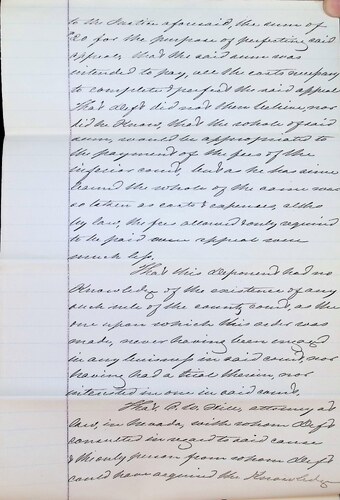 to the Justice aforesaid, the sum of
$20 for the purpose of perfecting said
appeal, that the said sum was
intended to pay, all the costs necessary
to complete & perfect the said appeal
That deft did not then believe, nor
did he know, that the whole of said
sum, would be appropriated to
the payment of the fees of the
inferior court, but as he has since
learned the whole of the same was
so taken as costs & expenses, altho
by law, the fees allowed & only required
to be paid upon appeal some
much less.
That this deponent had no
knowledge of the existence of any
such rule of the county court, as the
one upon which this order was
made, never having been engaged
in any business in said court, nor
having had a trial therein, nor
interested in one in said court.
That attorney at
law, in Nevada, with whom deft
consulted in regard to said cause
& the only person from whom deft
could have acquired the knowledge